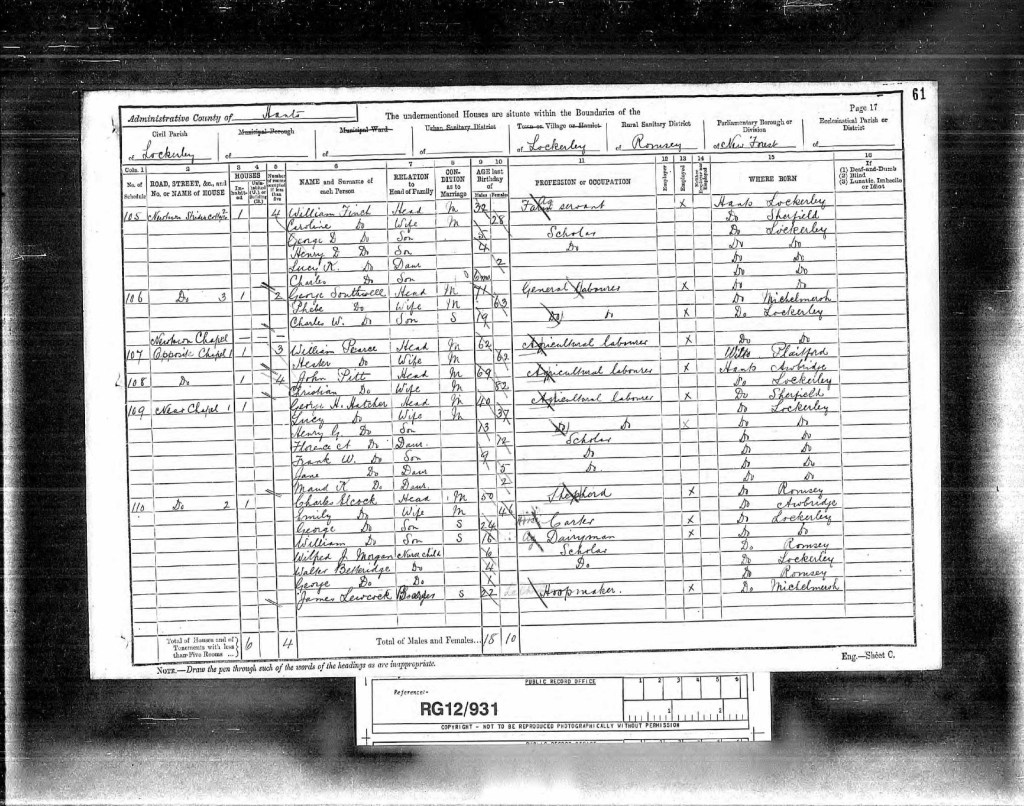 61
Administrative County of Hants The undermentioned Houses are situate within the Boundaries of the Page 17
Civil Parish Municipal Borough Municipal Ward Urban Sanitary District Town or Village or Hamlet Rural Sanitary District Parliamentary Borough or Division Ecclesiastical Parish or District
of Lockerley of of of of Lockerley of Romsey of New Forest of
Cols. 1 2 3 4 5 6 7 8 9 10 11 12 13 14 15 16
No. of Schedule ROAD, STREET, &c., and No. or NAME of HOUSE HOUSES NAME and Surname of each Person RELATION to Head of Family CONDITION as to Marriage AGE last Birthday of Males Females PROFESSION or OCCUPATION Employer Employed WHERE BORN If (1) Deaf-and-Dumb (2) Blind (3) Lunatic, Imbecile or Idiot
105 1 4 William Finch Head M 32 servant X Hants Lockerley
Caroline Do Wife M 28 Do Sherfield
George Do Son 5 Scholar Do Lockerley
Henry Do Son 4 Do Do Do
Lucy K. Do Daur 2 Do Do
Charles Do Son 6m Do Do
106 Do 3 1 2 George Southwell Head M 71 General Labourer X
Phebe Do Wife M 63 Do Michelmersh
Charles W. Do Son S 19 Do Do X Do Lockerley
Newtown Chapel
107 Opposite Chapel 1 1 3 William Pearce Head M 62 Agricultural labourer X Do Do
Hester Do Wife M 62 Wilts Plaitford
108 Do 1 4 John Pitt Head M 69 Agricultural labourer X Hants Awbridge
Christian Do Wife M 82 Do Lockerley
109 Near Chapel 1 1 George H. Hatcher Head M 40 Agricultural labourer X Do Sherfield
Lucy Do Wife M 37 Do Lockerley
Henry G. Do Son 13 Do Do X Do Do
Florence A Do Daur. 12 Scholar Do Do
Frank W. Do Son 9 Do Do Do
Jane Do Daur 5 Do. Do Do
Maud K Do Daur. 2 Do Do
110 Do 2 1 Charles Elcock Head M 50 Shepherd X Do Romsey
Emily Do Wife M 46 Do Awbridge
George Do Son S 24 Carter X Do Lockerley
William Do Son S 16 Dairyman X Do Do
Wilfred J. Morgan Nurse child 6 Scholar Do Romsey
Walter Betteridge Do 4 Do Do Lockerley
George Do Do 1 Do Romsey
James Lewcock Boarder S 22 Hoopmaker. X Do Michelmersh
Total of Houses and of Tenements with less than Five Rooms ... 6 4 Total of Males and Females... 18 10
NOTE.—Draw the pen through such of the words of the headings as are inappropriate.
Eng.—Sheet C.
PUBLIC RECORD OFFICE
1 2 3 4 5 6
Reference:-
RG12/931
1 2
COPYRIGHT - NOT TO BE REPRODUCED PHOTOGRAPHICALLY WITHOUT PERMISSION
PUBLIC RECORD OFFICE